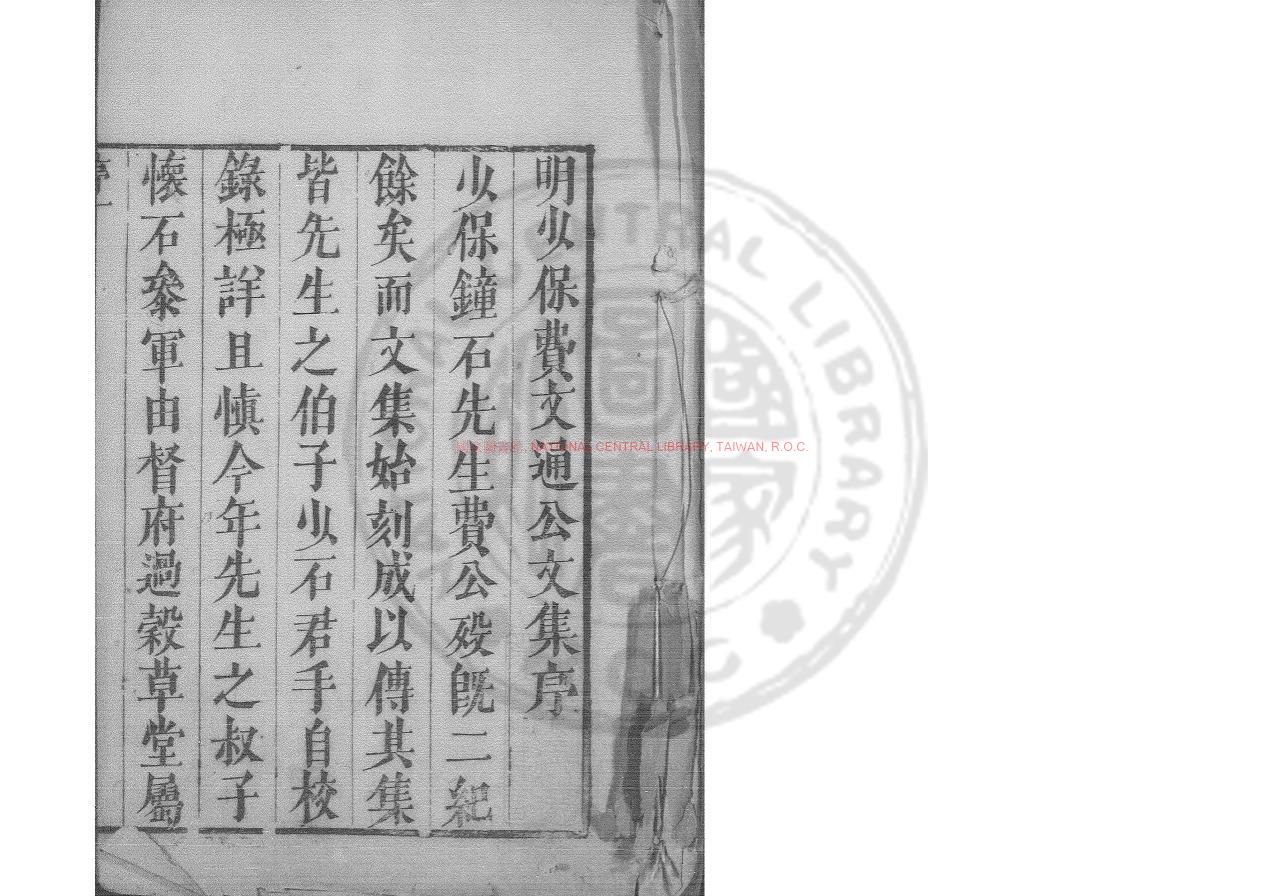 明少保費文通公文集序
少保鐘石先生費公歿旣二紀
餘矣而文集始刻成以傳其集
皆先生之伯子少石君手自校
錄極詳且愼今年先生之叔子
懷石叅軍由督府過穀草堂屬
序一
國家圖書館, NATIONAL CENTRAL LIBRARY, TAIWAN, R.O.C.